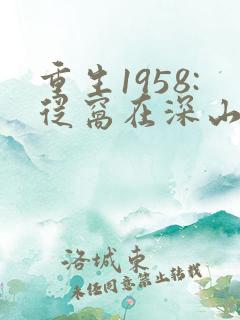 重生1958:
从窝在深山
洛城东
未经同意禁止转载